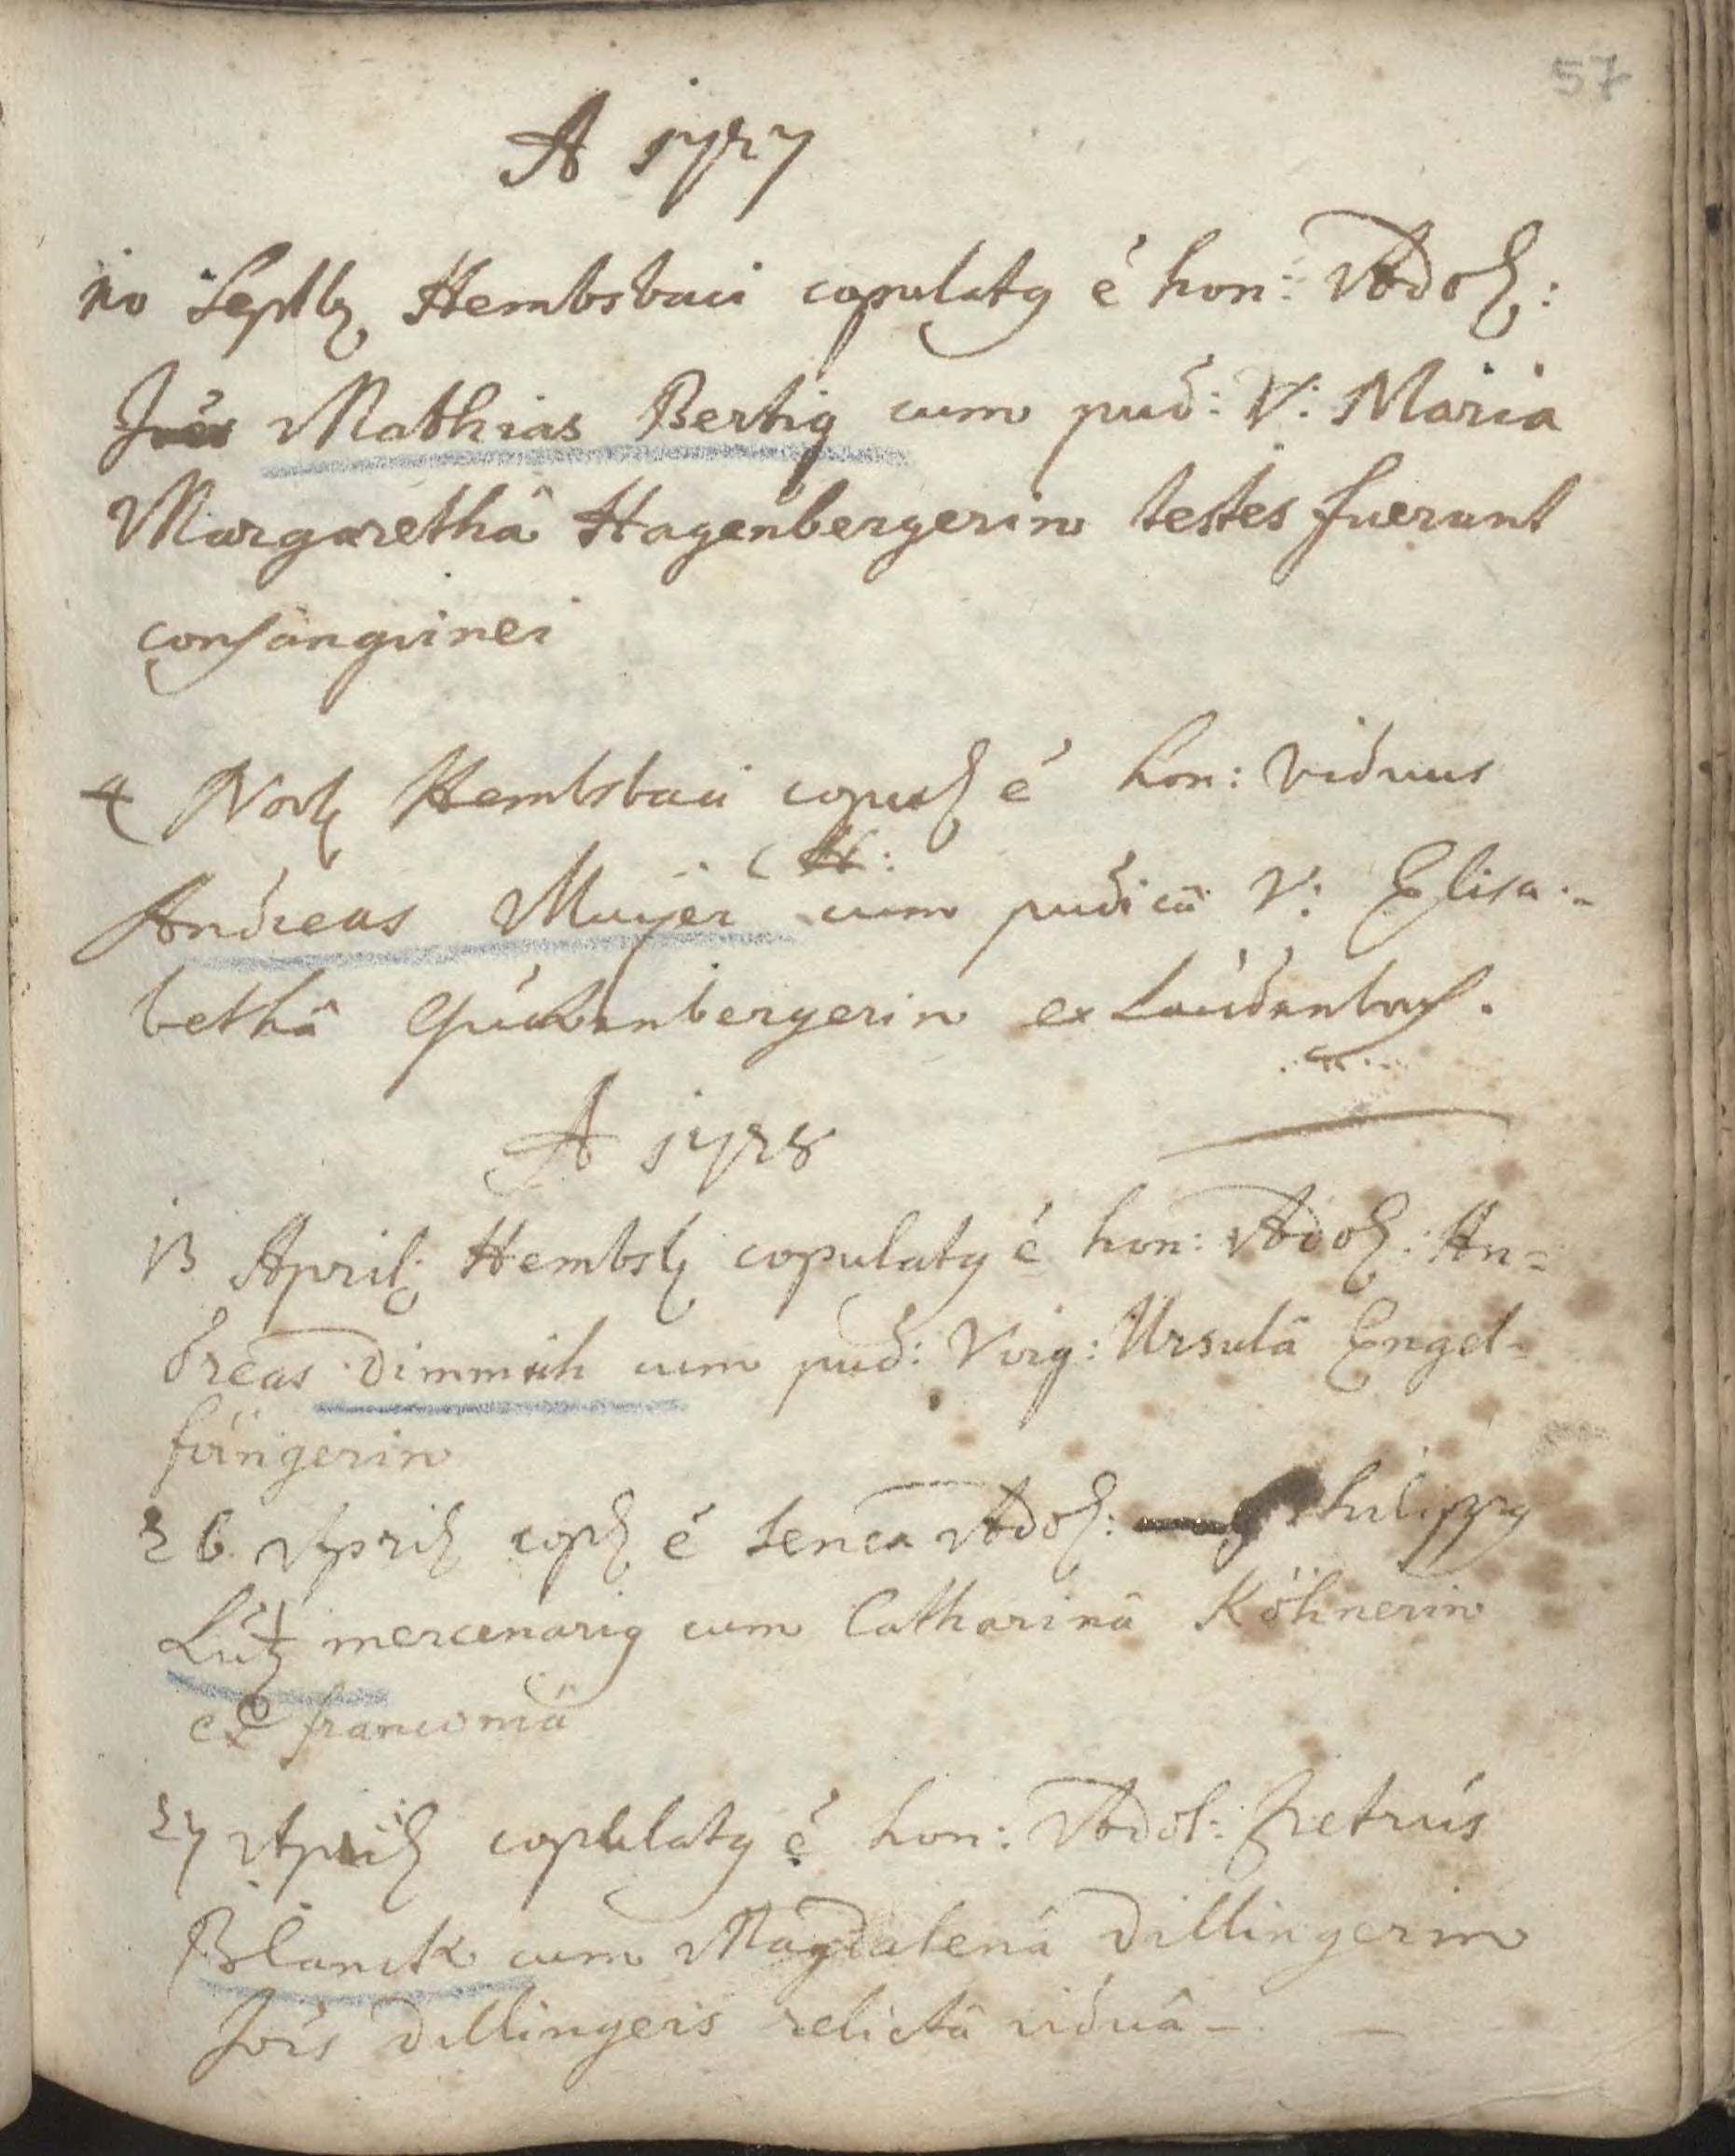 57
A 1727
10 Septb Hembsbaci copulatq é hon: Adol:
Joës Mathias Bertig cum pud: V: Maria
Margarethâ Hagenbergerin testes fuerunt
consanguinei
4 Novb Hembsbaci copul é hon: viduus
Andreas Mayer cum pudicâ V: Elisa-
bethâ ex Laúdenbach.
A 1728
13 April: Hembsb copulatq é hon: Adol: An=
dreas Dimmich cum pud: Virg: Ursulâ Engel-
füngerin
26 April cop é Adol: Philippq
Lútz mercenariq cum Catharinâ Köhnerin
ex franconiâ
27 April copulatq é hon: Adol: Petrús
Blanck cum Magdalenâ Dillingerin
Jois Dillingers relictâ viduâ -